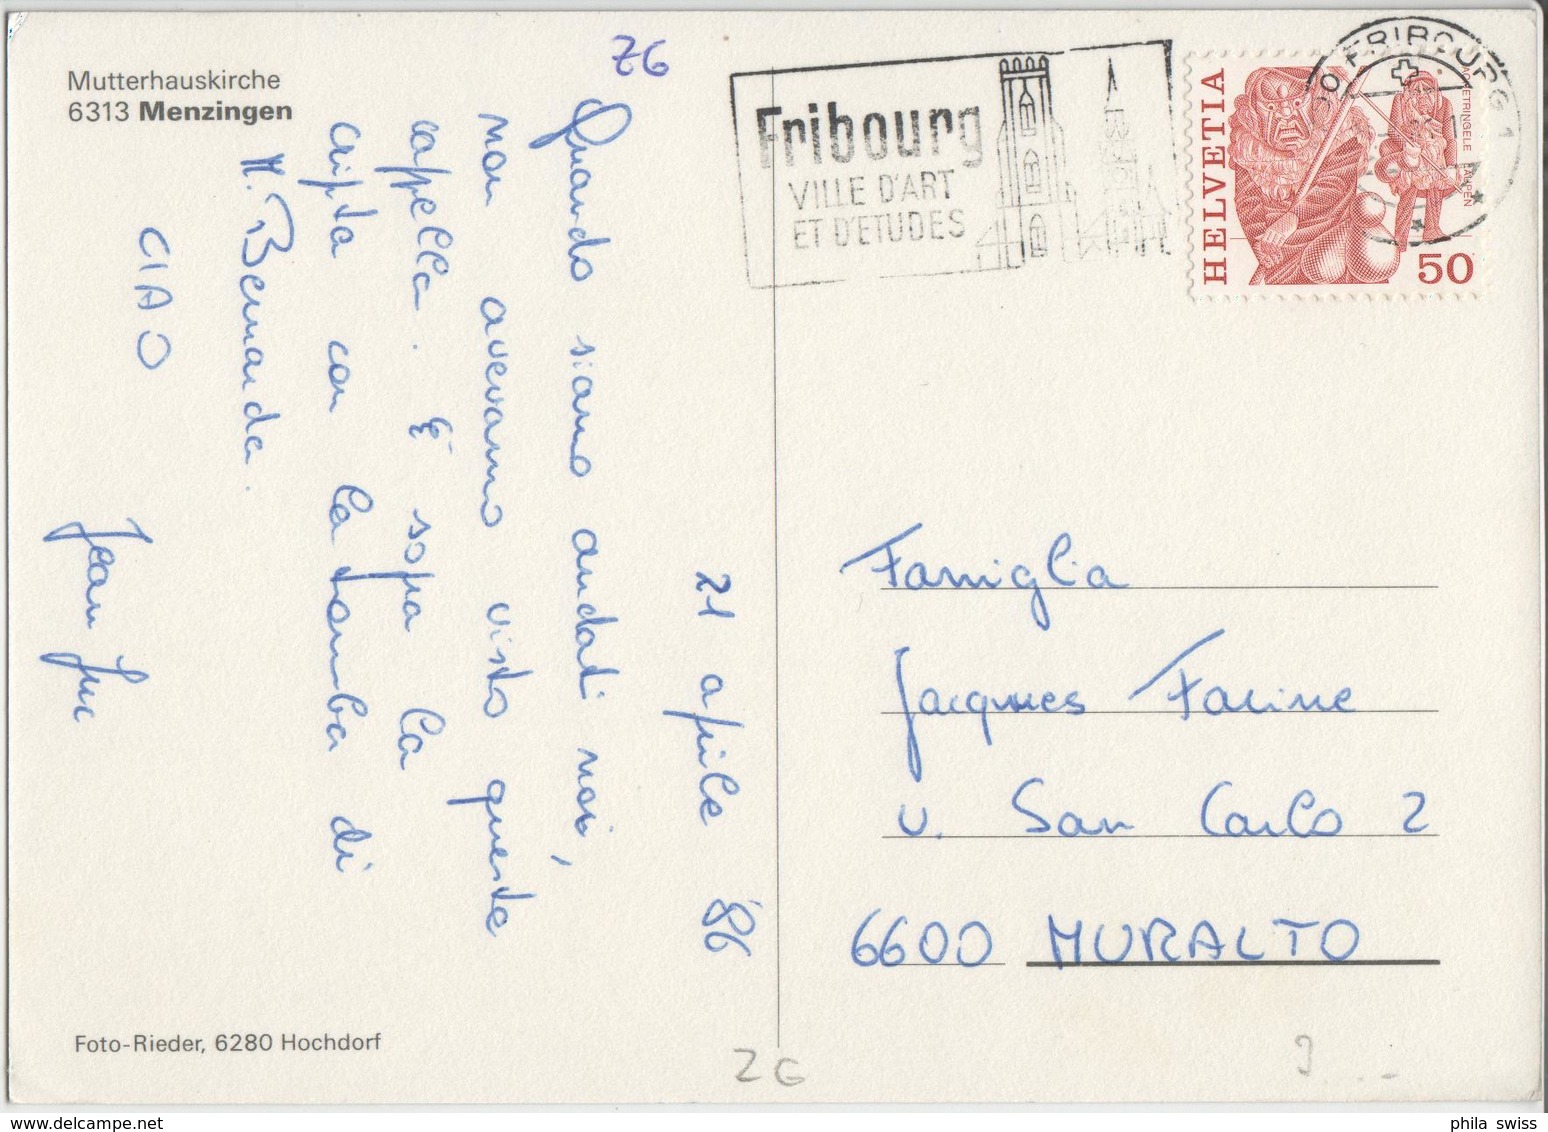 Mutterhauskirche
6313 Menzingen
ZG
21 aprile '86
Quando siamo andati noi,
non avevamo visto queste
cappella. È sopra la
cripta con la tomba di
M. Bernarda.
CIAO Jean Luc
Foto-Rieder, 6280 Hochdorf
Fribourg
VILLE D'ART
ET D'ETUDES
HELVETIA
50
ACHETRINGELE LAUPEN
FRIBOURG 1
Famiglia
Jacques Farine
v. San Carlo 2
6600 MURALTO
ZG
phila swiss